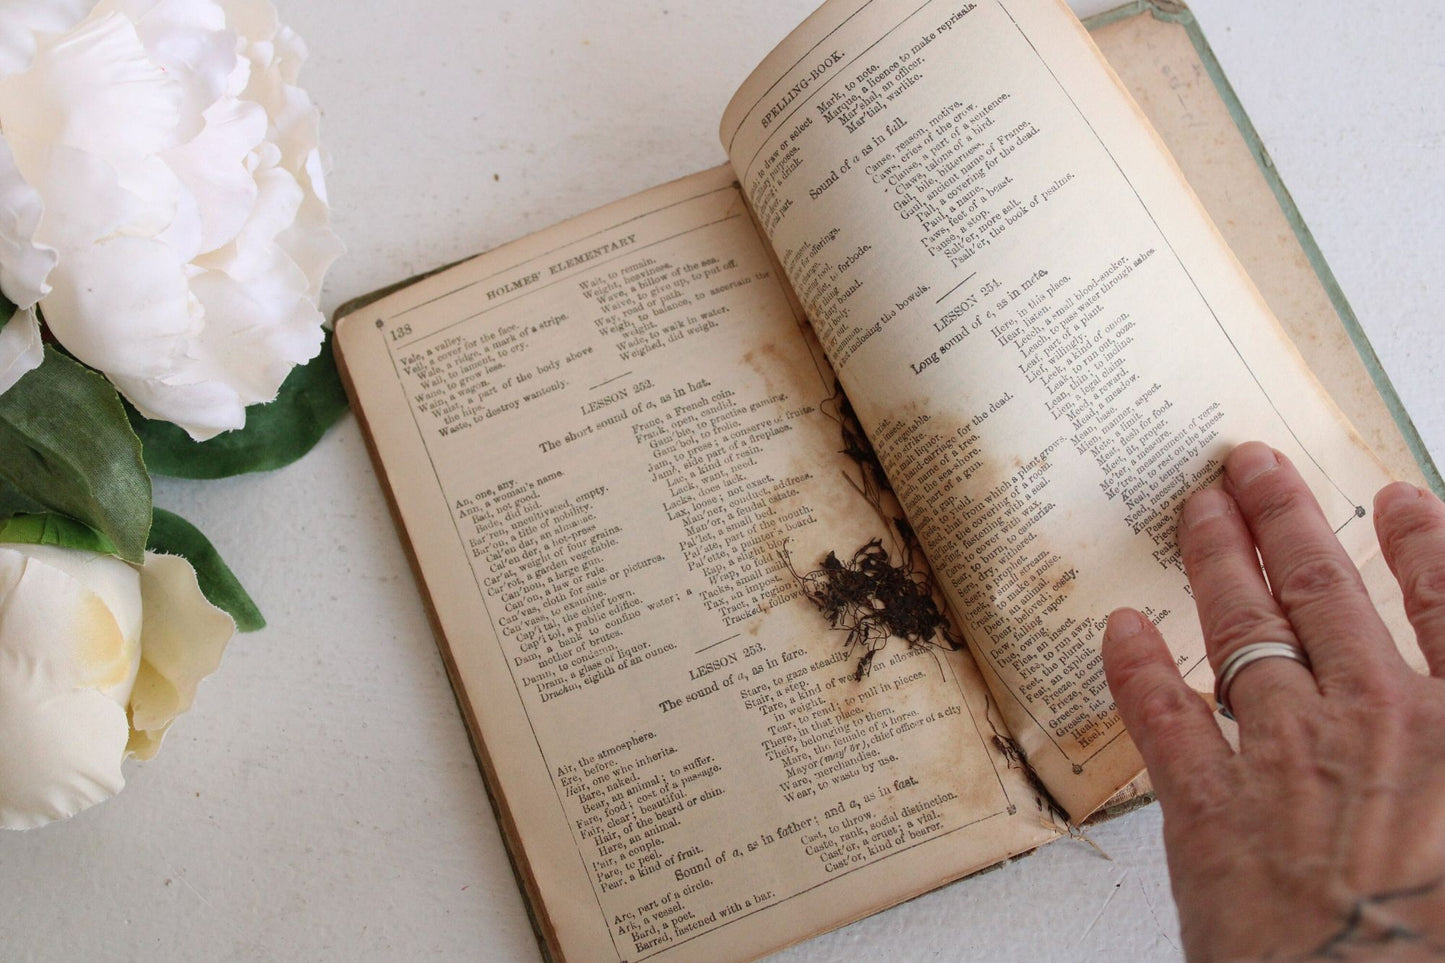 HOLMES' ELEMENTARY
138
Vale, a valley.
Veil, a cover for the face.
Wale, a ridge, a mark of a stripe.
Wail, to lament, to cry.
Wane, to grow less.
Wain, a wagon.
Waist, a part of the body above
the hips.
Waste, to destroy wantonly.
Wait, to remain.
Weight, heaviness.
Wave, a billow of the sea.
Waive, to give up, to put off.
Way, road or path.
Weigh, to balance, to ascertain the
weight.
Wade, to walk in water.
Weighed, did weigh.
LESSON 252.
The short sound of a, as in hat.
An, one, any.
Ann, a woman's name.
Bad, not good.
Bade, did bid.
Bar'ren, uncultivated, empty.
Bar'on, a title of nobility.
Cal'en dar, an almanac.
Cal'en der, a hot-press
Car'at, weight of four grains.
Car'rot, a garden vegetable.
Can'non, a large gun.
Can'on, a law or rule.
Can'vas, cloth for sails or pictures.
Can'vass, to examine.
Cap'i tal, the chief town.
Cap'i tol, a public edifice.
Dam, a bank to confine water; a
mother of brutes.
Damn, to condemn.
Dram, a glass of liquor.
Drachm, eighth of an ounce.
Franc, a French coin.
Frank, open, candid.
Gam'ble, to practise gaming.
Gam'bol, to frolic.
Jam, to press; a conserve of fruits.
Jamb, side part of a fireplace.
Lac, a kind of resin.
Lack, want, need.
Lacks, does lack.
Lax, loose; not exact.
Man'ner, conduct, address.
Man'or, a feudal estate.
Pal'let, a small bed.
Pal'ate, part of the mouth.
Pal'ette, a painter's board.
Rap, a slight
Wrap, to fold
Tacks, small nails
Tax, an impost.
Tract, a region;
Tracked, followed
LESSON 253.
The sound of a, as in fare.
Air, the atmosphere.
Ere, before.
Heir, one who inherits.
Bare, naked.
Bear, an animal; to suffer.
Fare, food; cost of a passage.
Fair, clear; beautiful.
Hair, of the beard or chin.
Hare, an animal.
Pair, a couple.
Pare, to peel.
Pear, a kind of fruit.
Stare, to gaze steadily
Stair, a step.
Tare, a kind of weed, an allowance
in weight.
Tear, to rend; to pull in pieces.
There, in that place.
Their, belonging to them.
Mare, the female of a horse.
Mayor (may'or), chief officer of a city
Ware, merchandise.
Wear, to waste by use.
Sound of a, as in father; and a, as in fast.
Arc, part of a circle.
Ark, a vessel.
Bard, a poet.
Barred, fastened with a bar.
Cast, to throw.
Caste, rank, social distinction.
Cast'er, a cruet; a vial.
Cast'or, kind of beaver.
SPELLING-BOOK.
to draw or select
military purposes.
a drink.
Mark, to note.
Marque, a licence to make reprisals.
Mar'shal, an officer.
Mar'tial, warlike.
Sound of a as in fall.
for offerings.
to forbode.
bound.
inclosing the bowels.
Cause, reason, motive.
Caws, cries of the crow.
Clause, a part of a sentence.
Claws, talons of a bird.
Gall, bile, bitterness.
Gaul, ancient name of France.
Pall, a covering for the dead.
Paul, a name.
Paws, feet of a beast.
Pause, a stop.
Salt'er, more salt.
Psalt'er, the book of psalms.
LESSON 254.
Long sound of e, as in mete.
vegetable.
to strike.
malt liquor.
a hand-carriage for the dead.
name of a tree.
the sea-shore.
part of a gun.
that from which a plant grows.
the covering of a room.
fastening with a seal.
to cover with wax.
Sear, to burn, to cauterize.
Sere, dry, withered.
Seer, a prophet.
Creek, a small stream.
Creak, to make a noise.
Deer, an animal.
Dear, beloved; costly.
Dew, falling vapor.
Due, owing.
Flea, an insect.
Flee, to run away.
Feet, the plural of foot
Feat, an exploit.
Freeze, to
Frieze, coarse
Greece, a
Grease, fat.
Heal, to
Heel,
Here, in this place.
Hear, listen.
Leech, a small blood-sucker.
Leach, to pass water through ashes
Leaf, part of a plant.
Lief, willingly.
Leek, a kind of onion.
Leak, to run out, to ooze.
Lean, thin; to incline.
Lien, a legal claim.
Meed, a reward.
Mead, a meadow.
Mean,
Mien, manner, aspect.
Mete, a limit.
Meat, flesh for food.
Meet, fit, proper.
Me'ter, a measure.
Me'tre, measurement of verse.
Kneel, to rest on the knees.
Neal, to temper by heat.
Need, necessity.
Knead, to work dough.
Peace,